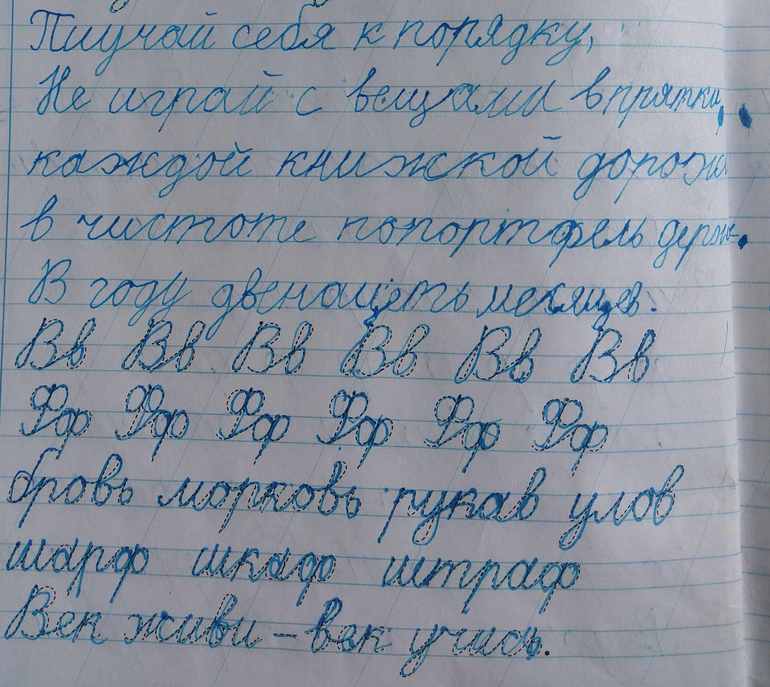 Пиучай себя к порядку,
Не играй с вещами в прятки,
каждой книжкой дорожи
в чистоте попортфель держи.
В году двенацеть месяцев.
Вв Вв Вв Вв Вв Вв
Фф Фф Фф Фф Фф Фф
бровь морковь рукав улов
шарф шкаф штраф
Век живи - век учись.